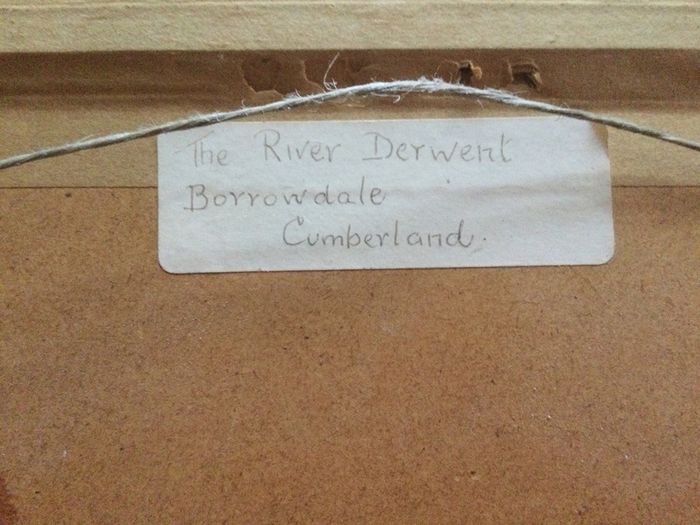 The River Derwent
Borrowdale
Cumberland.